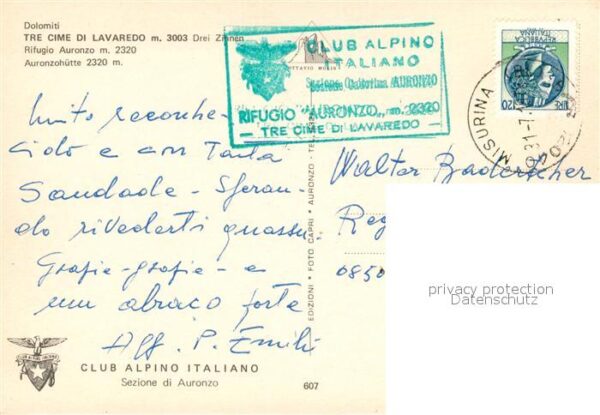 Dolomiti
TRE CIME DI LAVAREDO m. 3003 Drei Zinnen
Rifugio Auronzo m. 2320
Auronzohütte 2320 m.
CLUB ALPINO
ITALIANO
Sezione Cadorina AURONZO
RIFUGIO "AURONZO" m. 2320
— TRE CIME DI LAVAREDO —
REPUBBLICA
ITALIANA
LIRE 120
MISURINA
Muito reconhe-
cido e con Tanta
Saudade - Speran-
do rivederti quassu.
Grazie - grazie - e
um abraco forte
Aff. P. Emili
Walter Baderscher
Reg
0850
privacy protection
Datenschutz
EDIZIONI * FOTO CAPRI * AURONZO - TEL.
CLUB ALPINO ITALIANO
Sezione di Auronzo
607